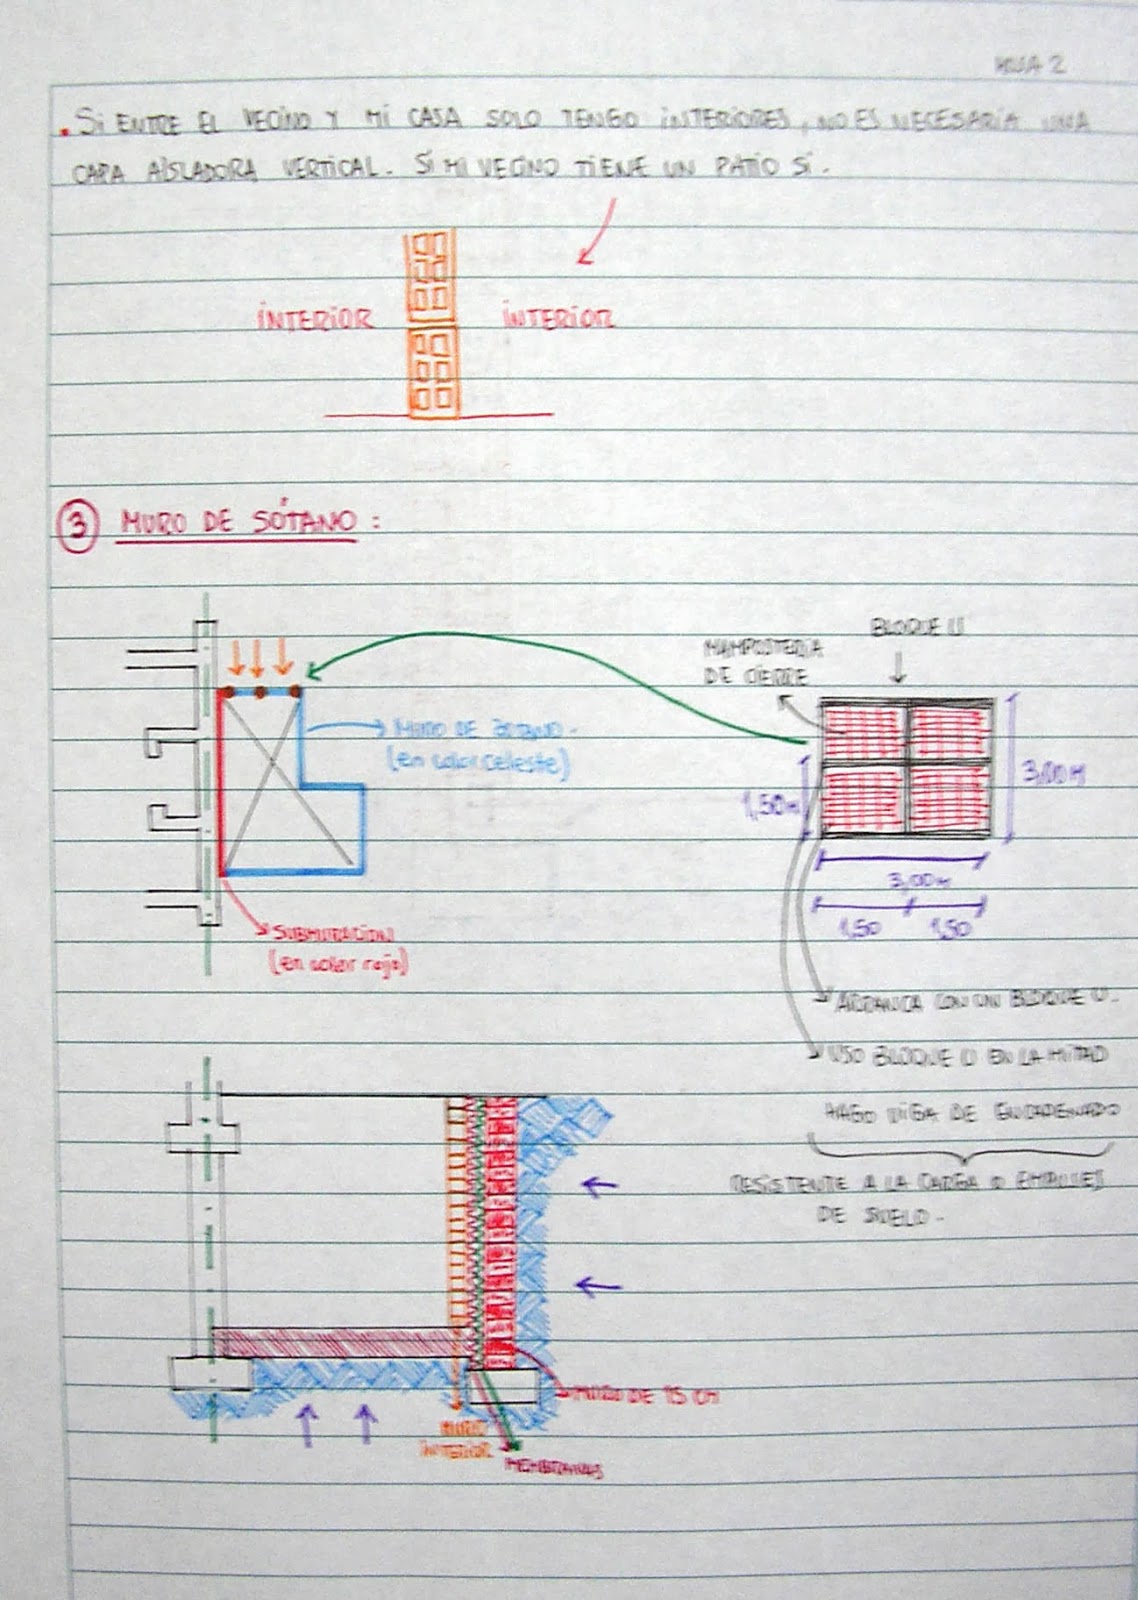 HOJA 2
. Si ENTRE EL VECINO Y MI CASA SOLO TENGO INTERIORES, NO ES NECESARIA UNA
CAPA AISLADORA VERTICAL. SI MI VECINO TIENE UN PATIO SI.
INTERIOR
INTERIOR
3 MURO DE SÓTANO:
BLOQUE U
MAMPOSTERIA
DE CIERRE
MURO DE SOTANO.
(en color celeste)
3,00 M
1,50 M
3,00 M
1,50
1,50
SUBMURACION
(en color rojo)
ARRANCA CON UN BLOQUE U.
USO BLOQUE U EN LA MITAD
HAGO VIGA DE ENCADENADO
RESISTENTE A LA CARGA O EMPUJES
DE SUELO.
MURO DE 15 CM
MURO
INTERIOR
MEMBRANAS